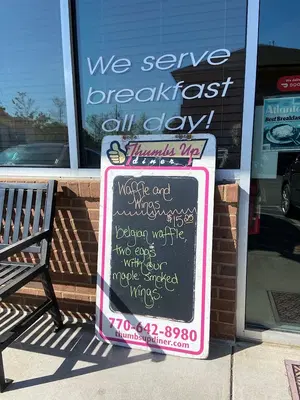 We serve
breakfast
all day!
Thumbs Up
diner
Waffle and
Wings
$15.00
Belgian waffle,
two eggs
with our
maple smoked
wings.
770-642-8980
thumbsupdiner.com
Atlanta
Best Breakfast